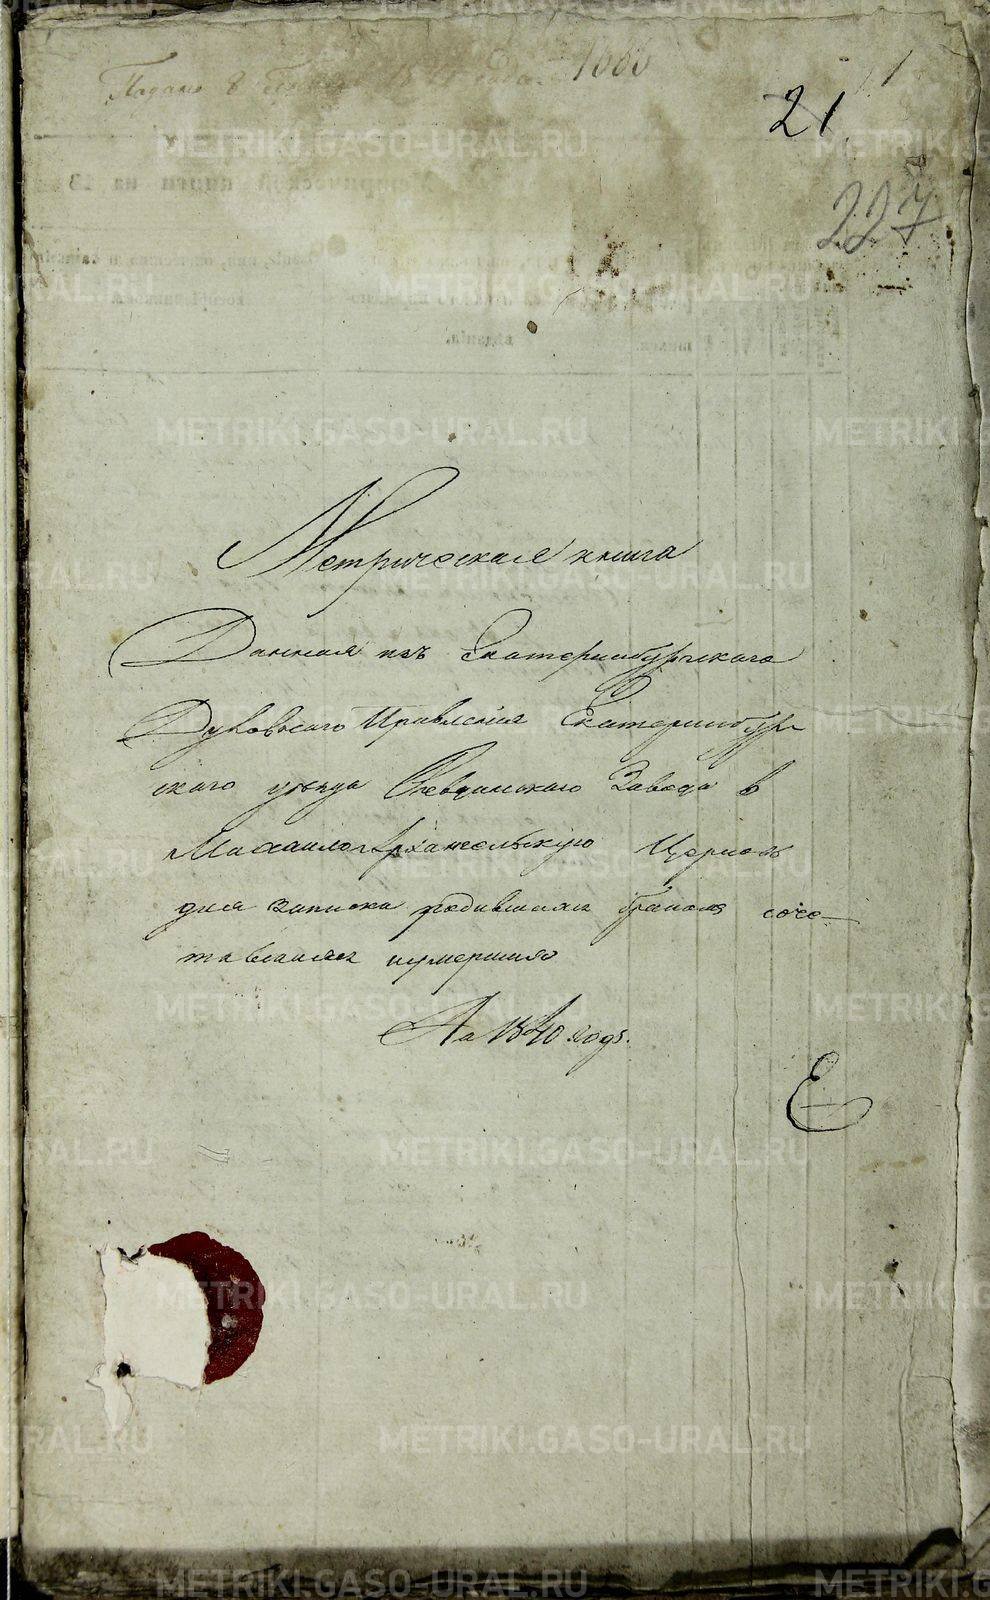 Подано 8 1841 года
21
227
Метрическая книга
Данная изъ Екатеринбургскаго
Духовнаго Правления Екатеринбург
скаго уезда Ревдинскаго Завода в
Михаило Архангельскую Церковь
для записки родившихся браком соче-
тавшихся и умерших
На 1840 годъ.
METRIKI.GASO-URAL.RU